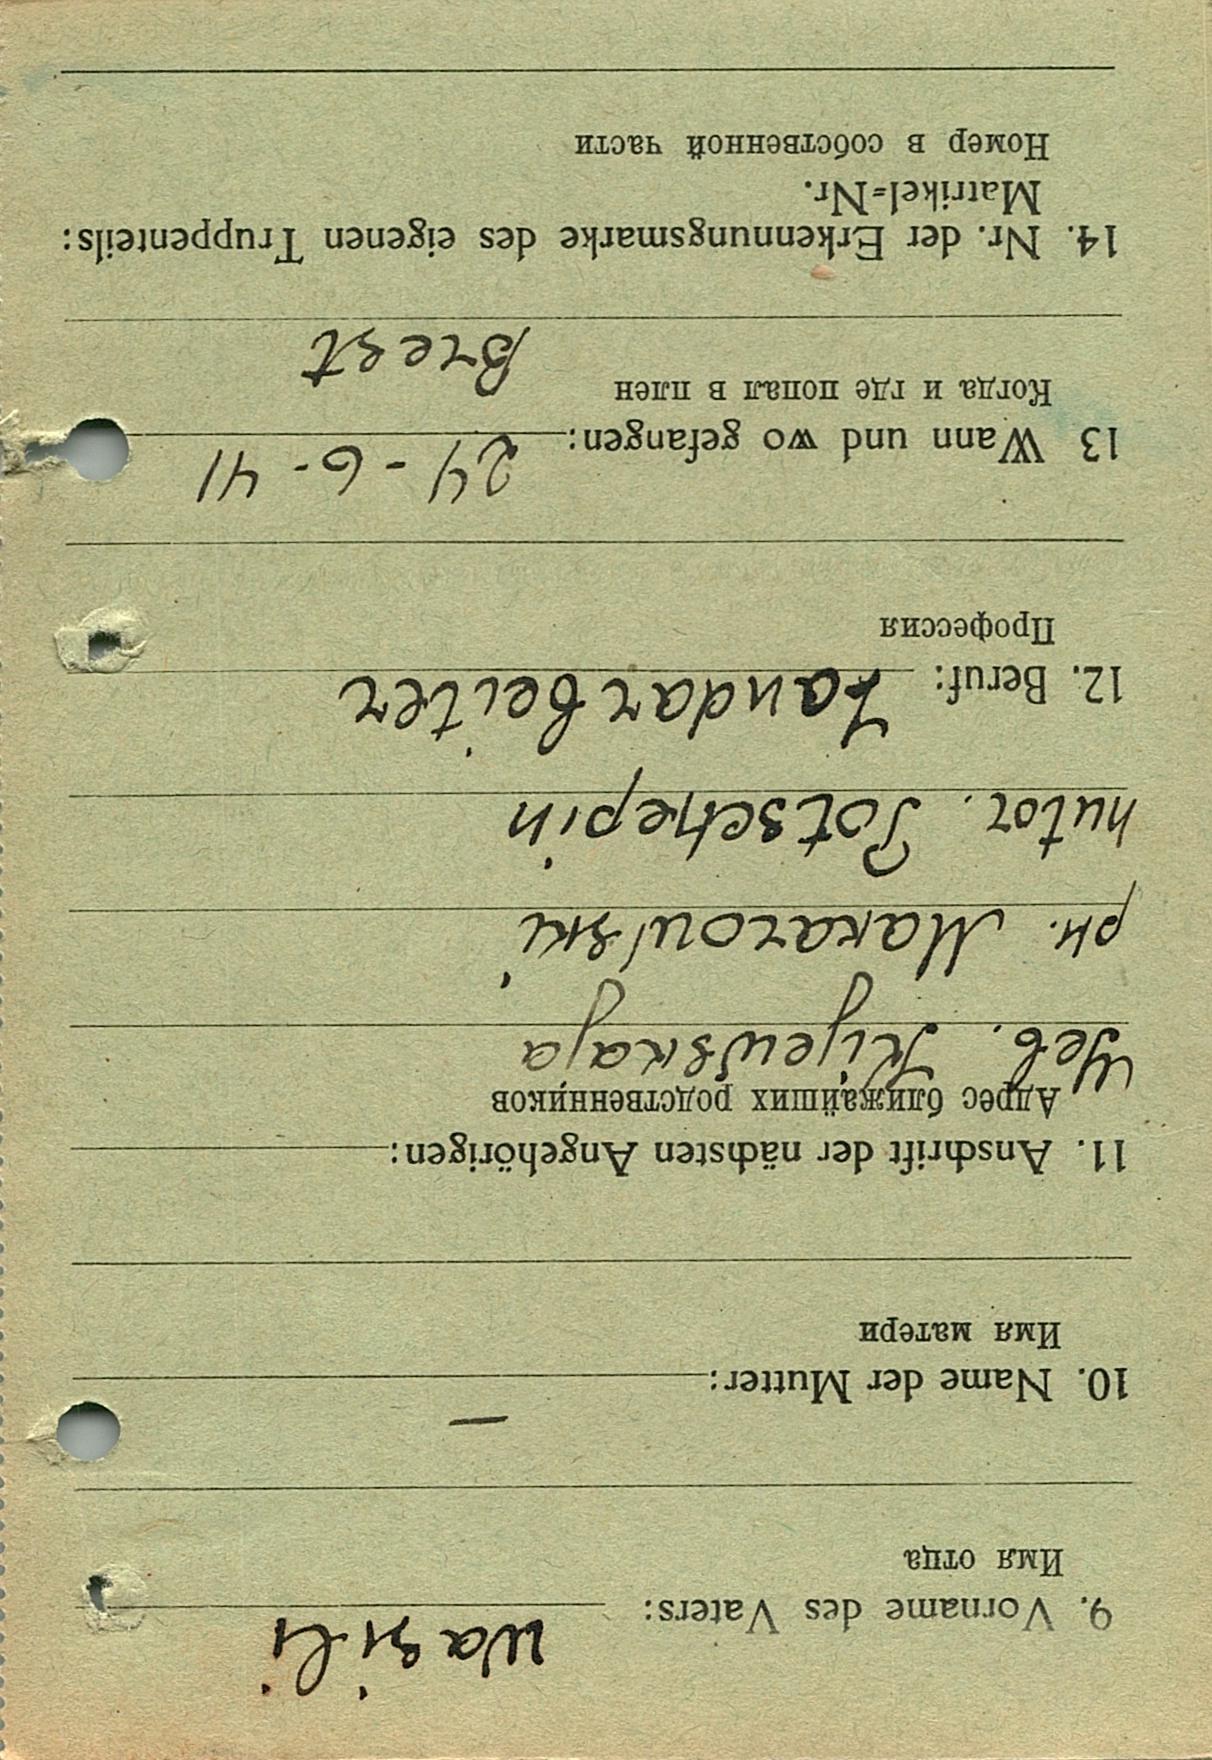 9. Vorname des Vaters: Wasili
Имя отца
10. Name der Mutter: —
Имя матери
11. Anschrift der nächsten Angehörigen:
Адрес ближайших родственников
Geb. Kijewskaja
рн. Makarowski
hutor. Potschepin
12. Beruf: Landarbeiter
Профессия
13 Wann und wo gefangen: 24-6-41
Когда и где попал в плен
Brest
14. Nr. der Erkennungsmarke des eigenen Truppenteils:
Matrikel=Nr.
Номер в собственной части